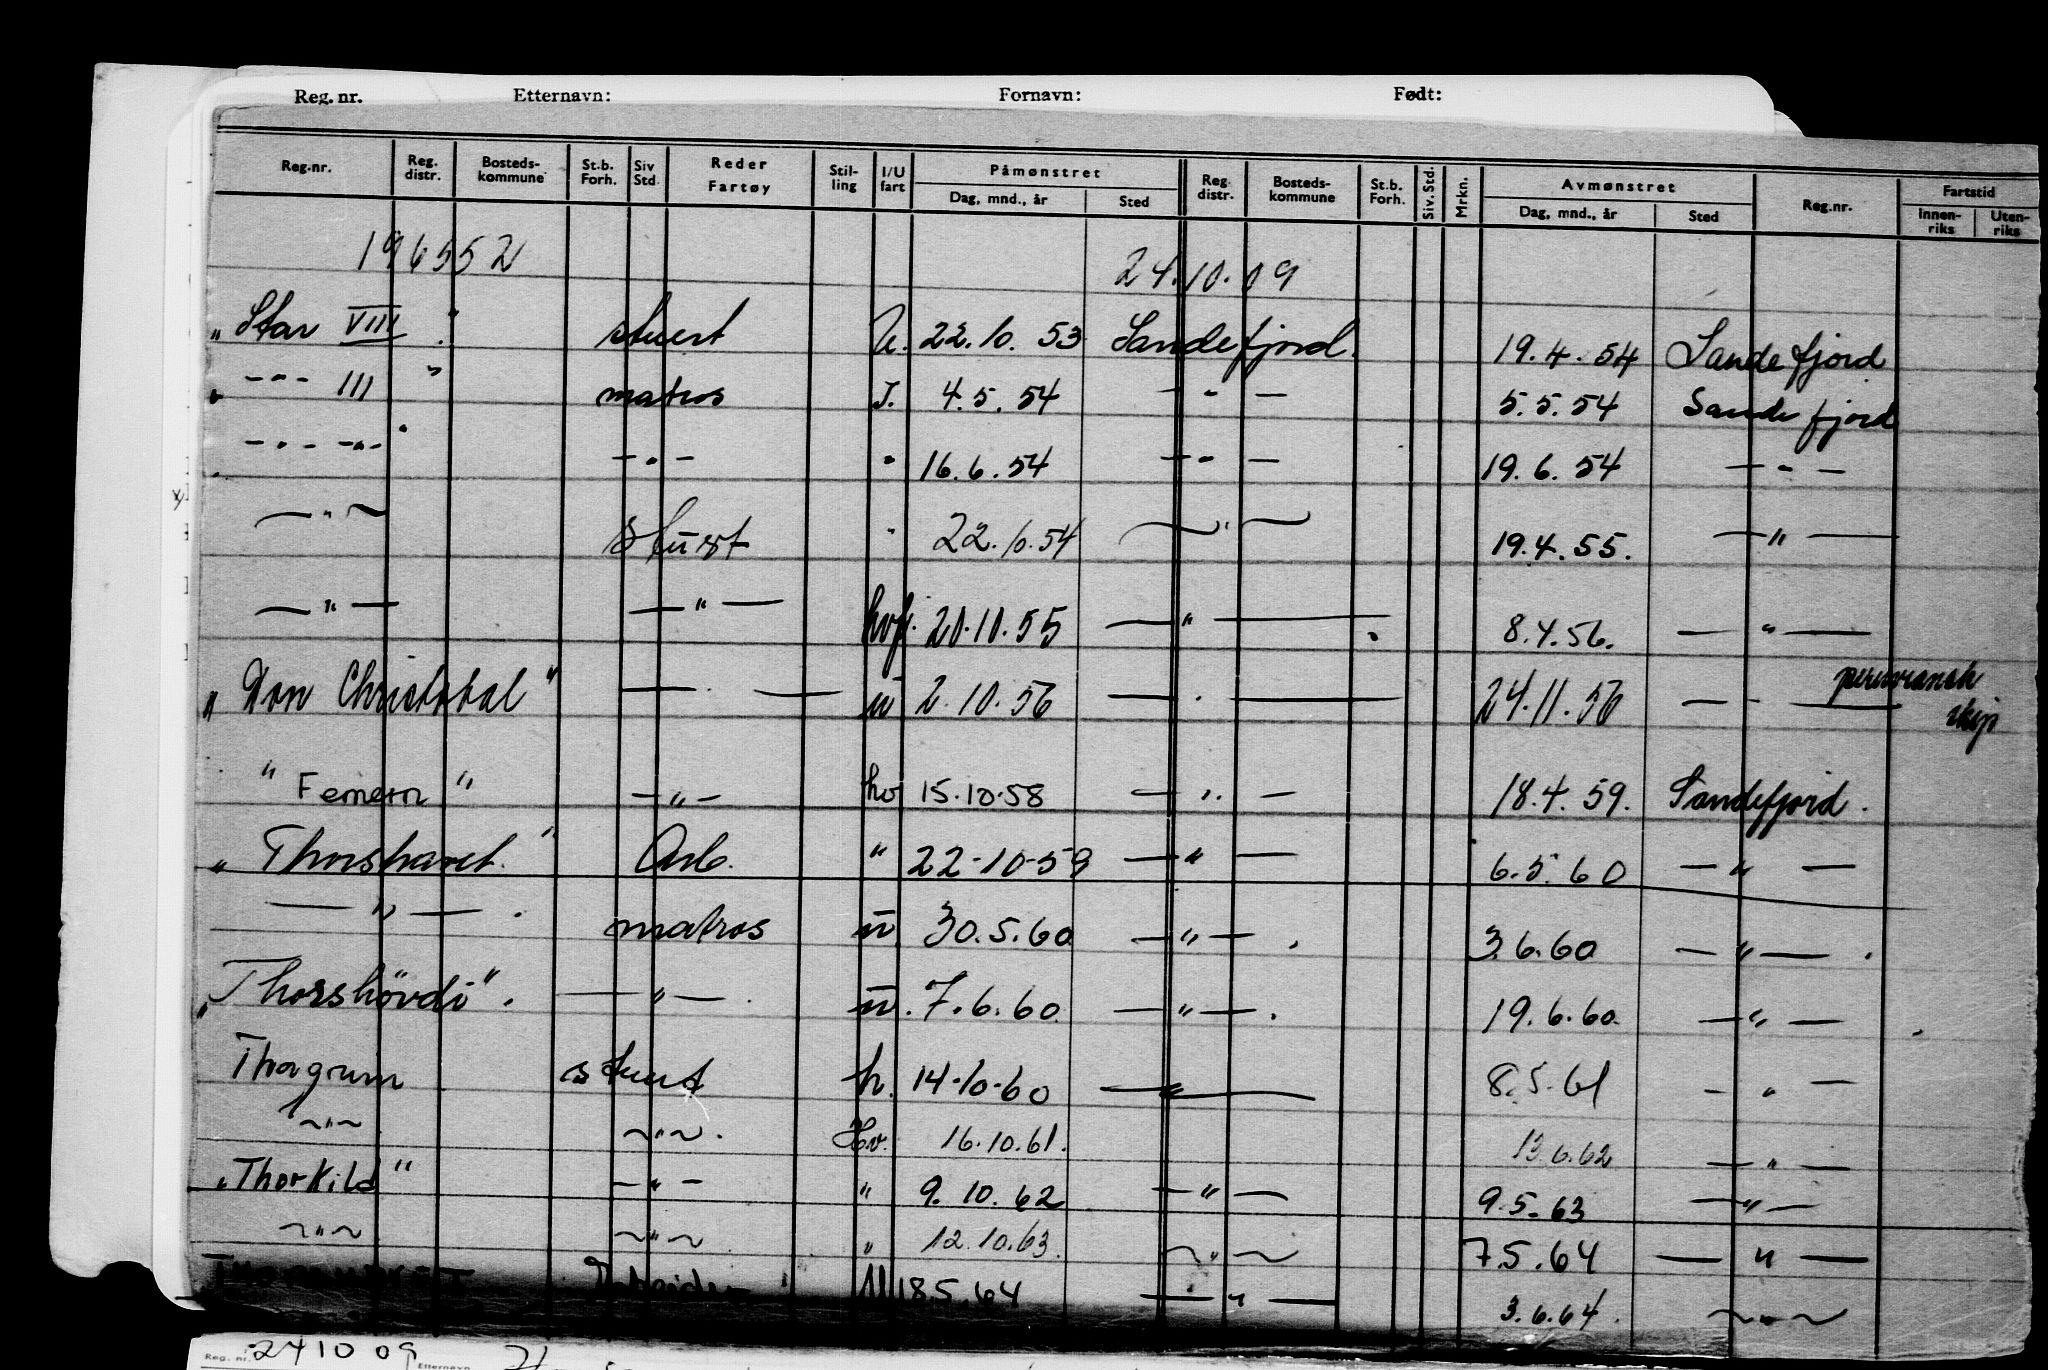 Reg. nr. Etternavn: Fornavn: Født:
Reg.nr. Reg. distr. Bosteds-kommune St.b. Forh. Siv Std. Reder Fartøy Stil-ling I/U fart Påmønstret Dag, mnd., år Sted Reg. distr. Bosteds-kommune St.b. Forh. Siv. Std. Mrkn. Avmønstret Dag, mnd., år Sted Reg.nr. Fartstid Innen-riks Uten-riks
196552 24.10.09
"Star VIII" stuert U. 22.10.53 Sandefjord. 19.4.54 Sandefjord
" -"- III " matros I. 4.5.54 - " - 5.5.54 Sandefjord
-"- -"- " -"- " 16.6.54 -"- 19.6.54 -"-
-"- stuert " 22.10.54 -"- 19.4.55. -"-
-"- -"- hvf. 20.10.55 -"- 8.4.56. -"-
"Don Christobal" - . - u 2.10.56 - . - 24.11.56 - - - peruviansk skip
"Femern" -"- hv 15.10.58 -"- 18.4.59. Sandefjord.
"Thorshavet." Arb. " 22-10-59 -"- 6.5.60 -"-
-"-. matros u. 30.5.60 -"-. 3.6.60 -"-.
"Thorshövdi". -"-. u. 7.6.60. -"-. 19.6.60. -"-
Thorgrim stuert h. 14-10-60 -"- 8.5.61 -"-
-"- -"-. Hv. 16.10.61. 13.6.62 -"-
"Thorkild" -"- " 9.10.62 -"- 9.5.63 -"-
-"- -"- " 12.10.63. -"- 7.5.64 -"-
U 18.5.64 -"- 3.6.64. -"-
Reg. nr. 241009 Etternavn